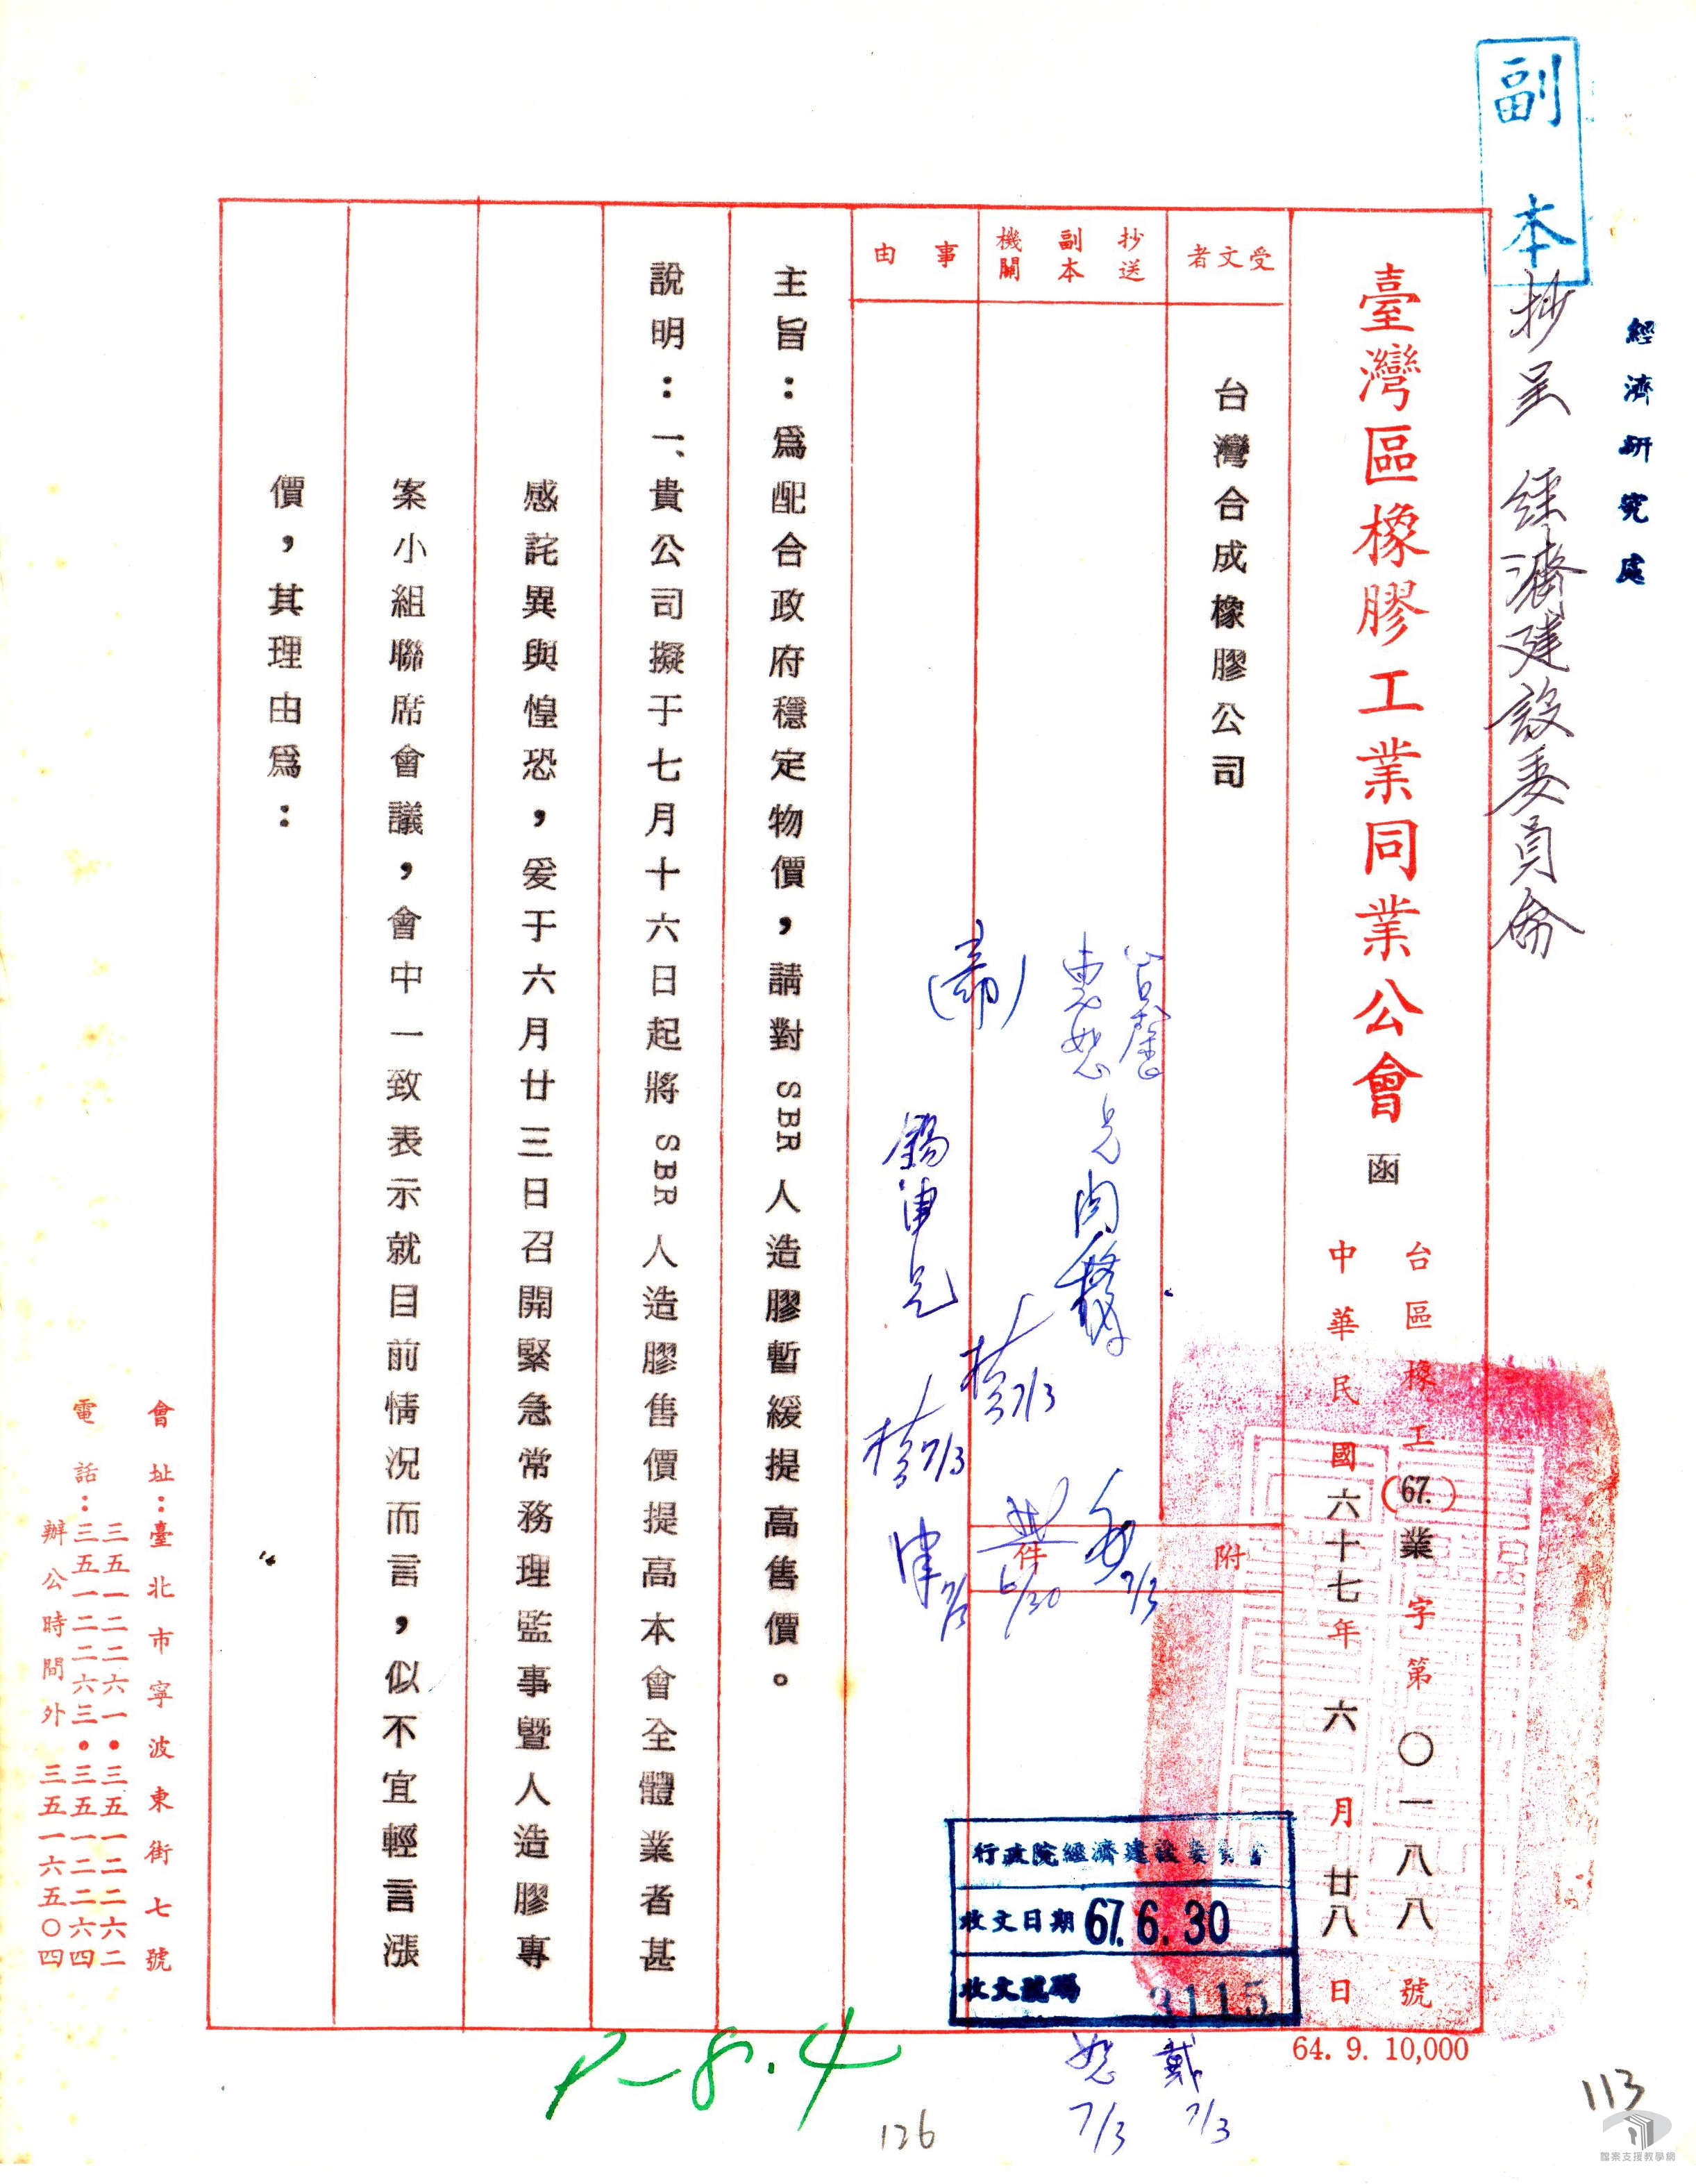 副本
抄呈 經濟建設委員會
經濟研究處
臺灣區橡膠工業同業公會 函
台區橡工(67.)業字第〇一八八號
中華民國六十七年六月廿八日
受文者
台灣合成橡膠公司
附
件
抄送
副本
機關
事由
主旨：爲配合政府穩定物價，請對SBR人造膠暫緩提高售價。
說明：一、貴公司擬于七月十六日起將SBR人造膠售價提高本會全體業者甚
感詫異與惶恐，爰于六月廿三日召開緊急常務理監事暨人造膠專
案小組聯席會議，會中一致表示就目前情況而言，似不宜輕言漲
價，其理由爲：
行政院經濟建設委員會
收文日期 67. 6. 30
收文號碼 3115
錫津兄
7/3
7/3
7/3
6/30
7/3
戴
7/3
7/3
會址：臺北市寧波東街七號
三五一二二六一・三五一二二六二
電話：三五一二二六三・三五一二二六四
辦公時間外 三五一六五〇四
64. 9. 10,000
P-8.4
126
113
檔案支援教學網